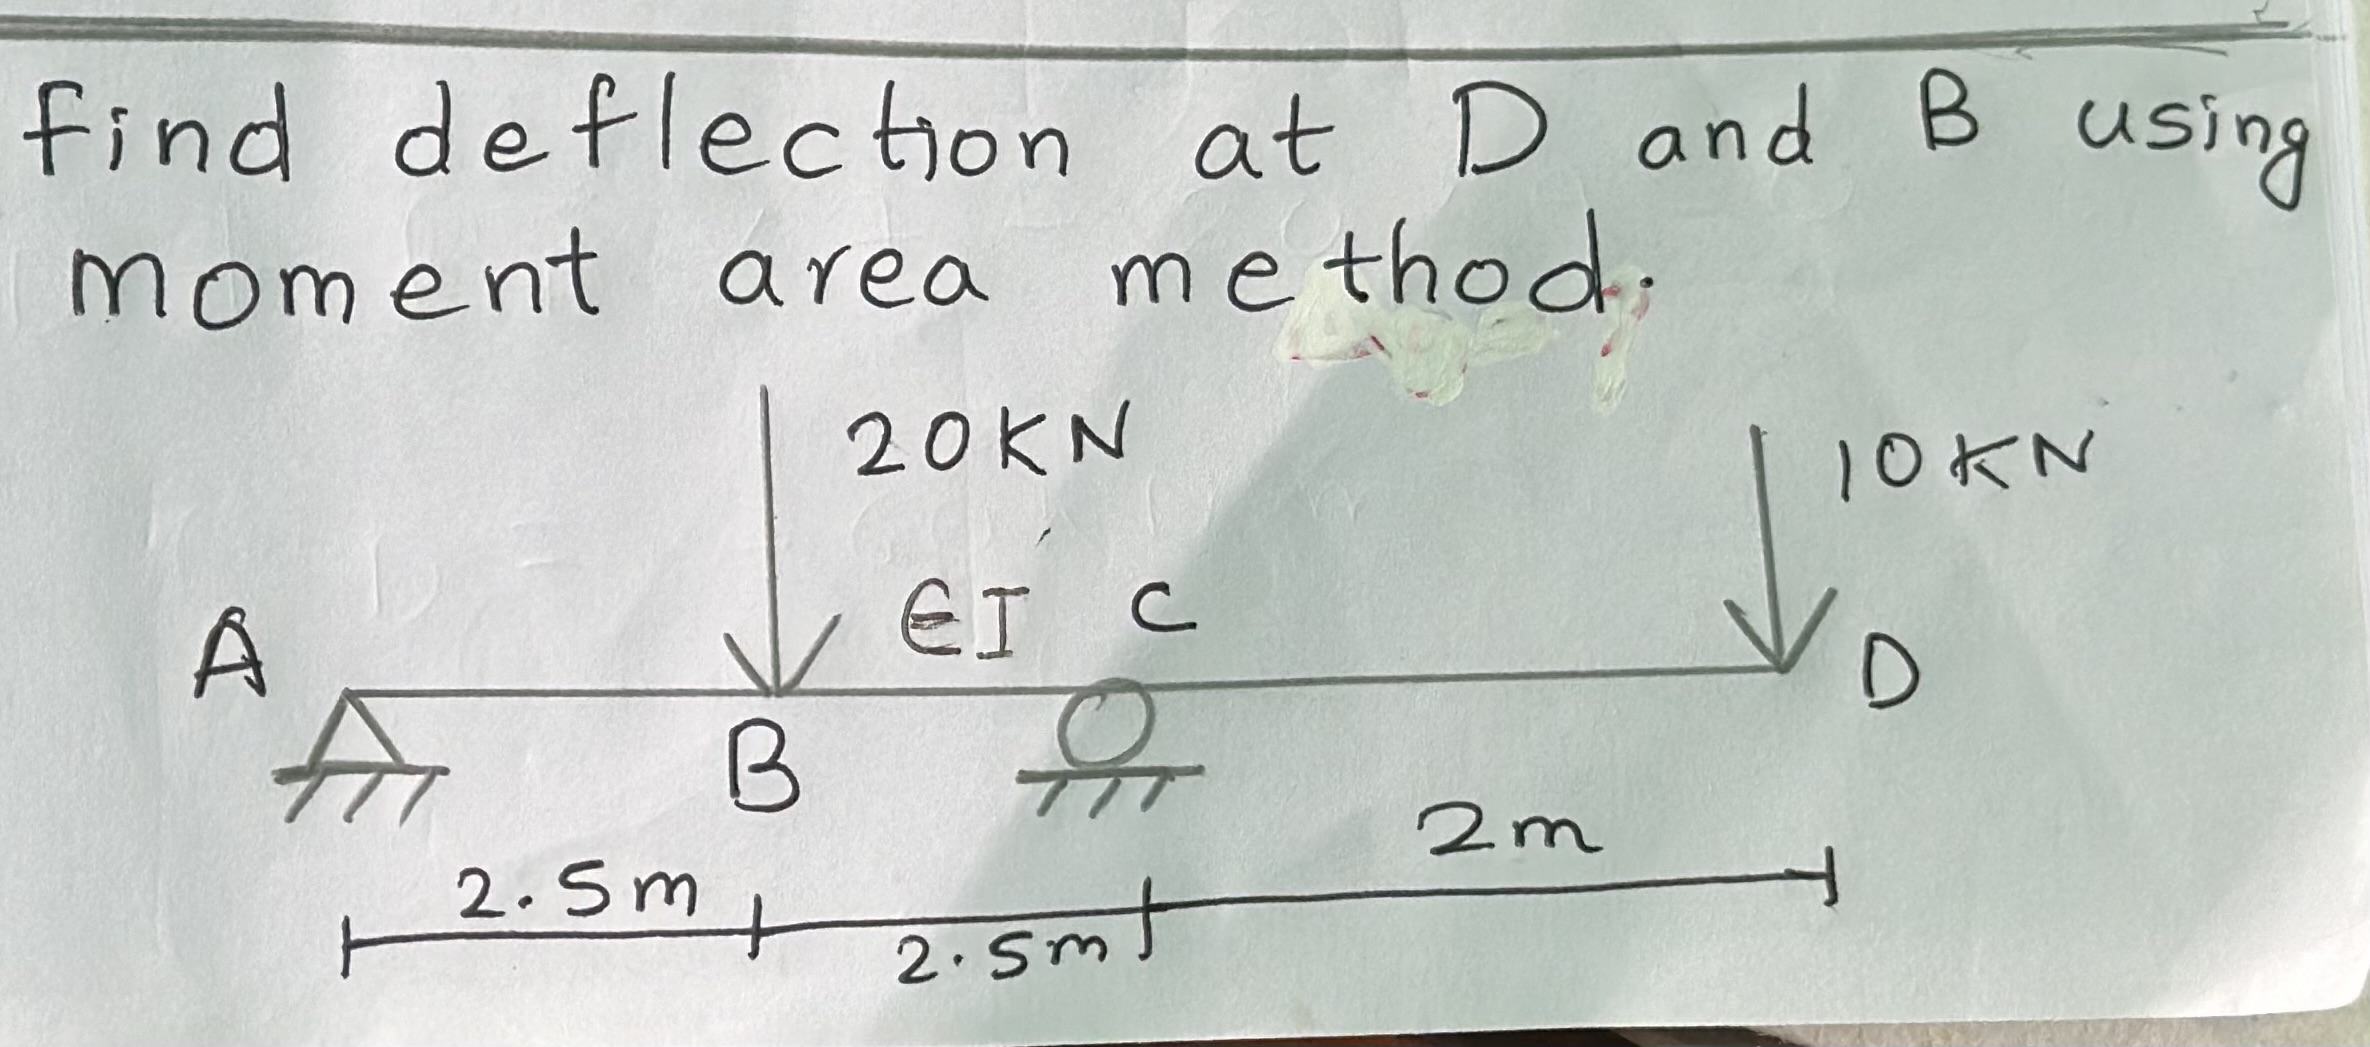 find deflection at D and B using
moment area method.
20KN
10KN
EI C
A
D
B
2m
2.5m
2.5m